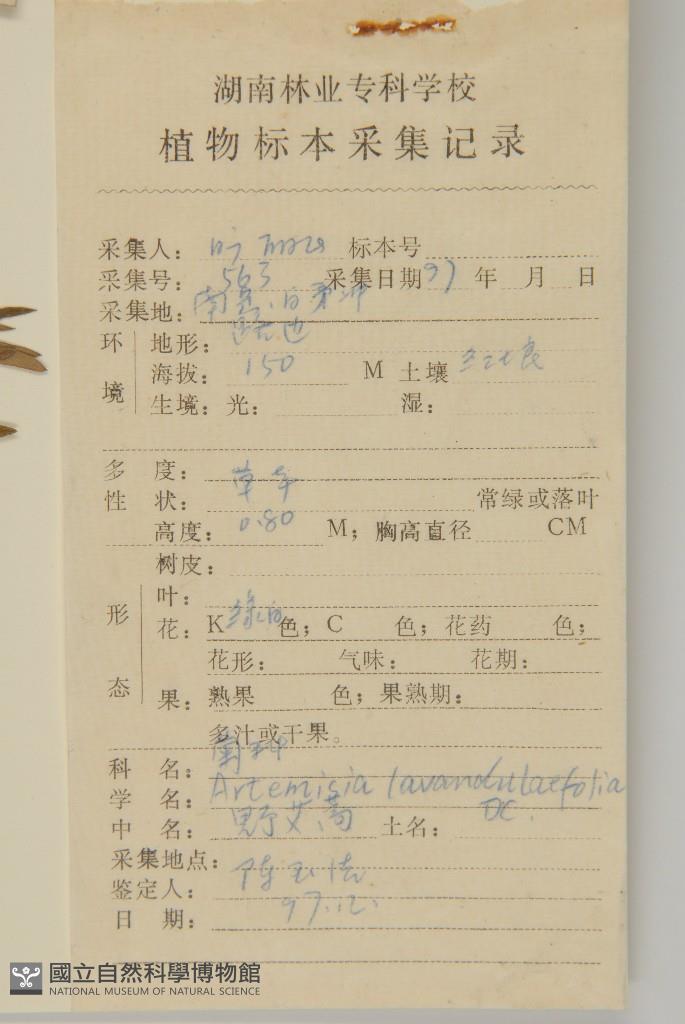 湖南林业专科学校
植物标本采集记录
采集人： 标本号
采集号：563 采集日期97年 月 日
采集地：南岳.
环境 地形：路边
海拔：150 M 土壤 红壤
生境：光： 湿：
多度：
性状：草本 常绿或落叶
高度：0.80 M；胸高直径 CM
形态 树皮：
叶：
花：K绿白色；C 色；花药 色；
花形： 气味： 花期：
果：熟果 色；果熟期：
多汁或干果。
科名：菊科
学名：Artemisia lavandulaefolia DC.
中名：野艾蒿 土名：
采集地点：
鉴定人：陈
日期：97.12.
國立自然科學博物館
NATIONAL MUSEUM OF NATURAL SCIENCE